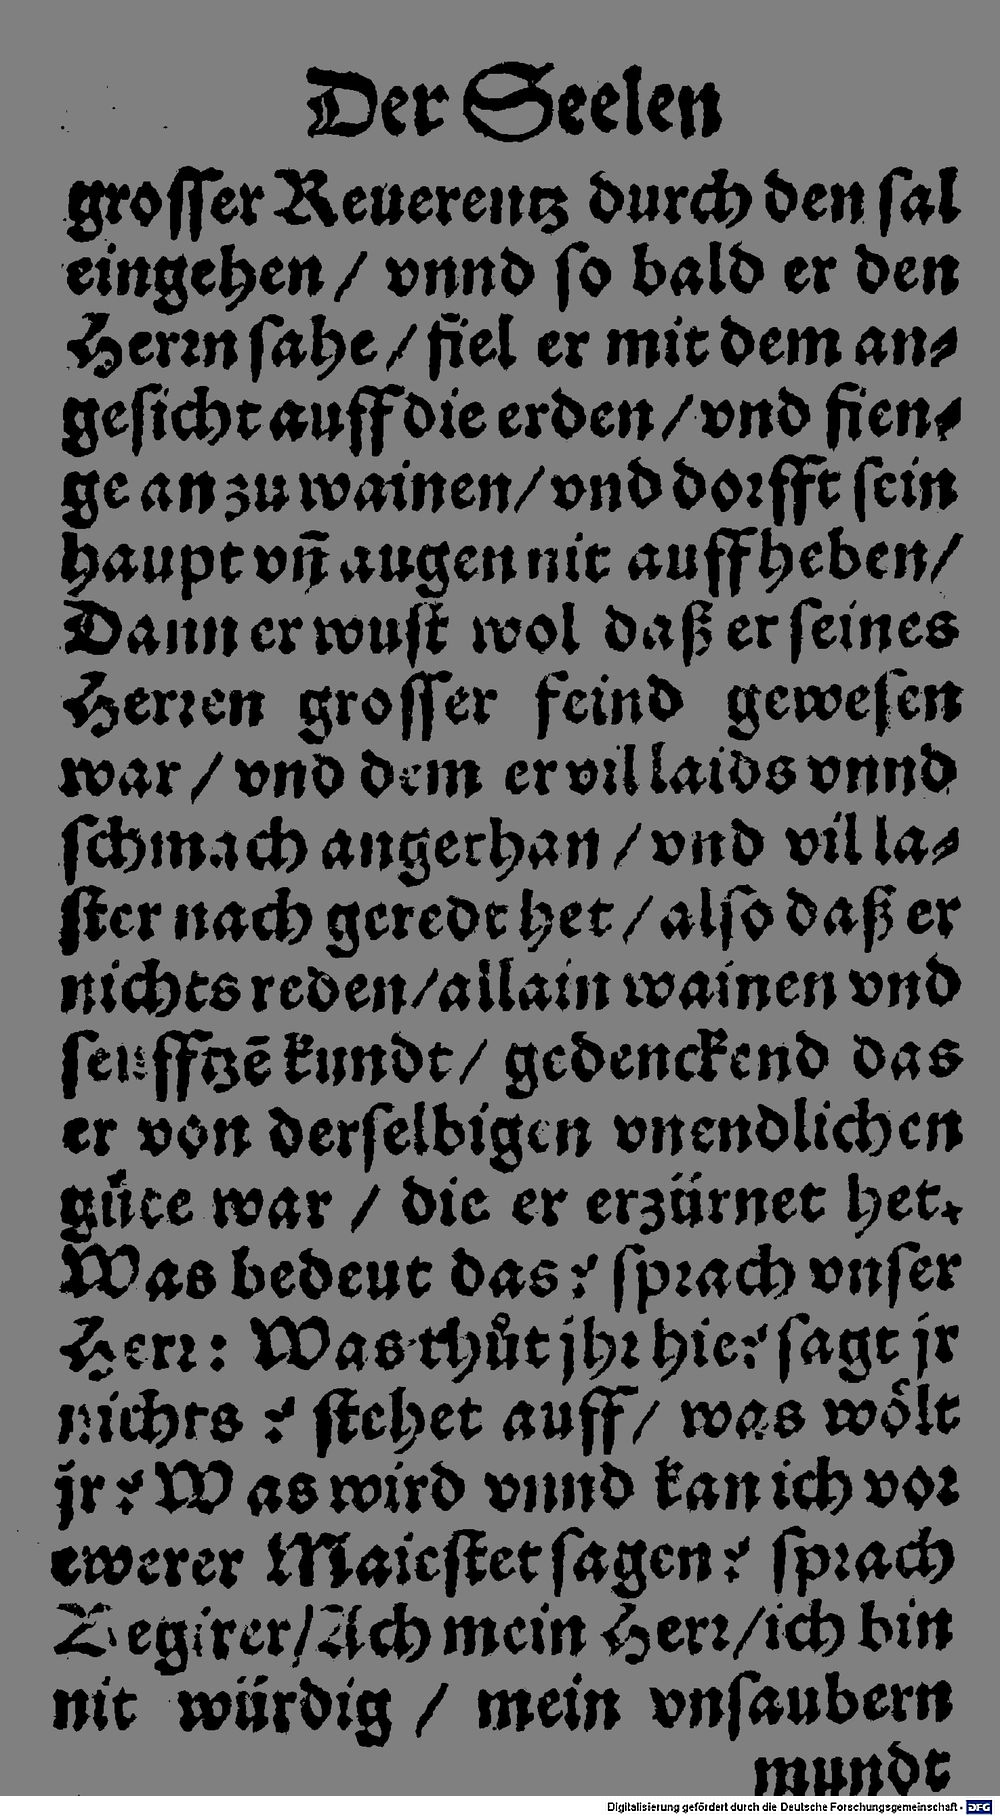 Der Seelen
grosser Reuerentz durch den sal
eingehen / vnnd so bald er den
Herrn sahe / fiel er mit dem an⸗
gesicht auff die erden / vnd fien⸗
ge an zu wainen / vnd dorfft sein
haupt vñ augen nit auffheben /
Dann er wust wol daß er seines
Herren grosser feind gewesen
war / vnd dem er vil laids vnnd
schmach angethan / vnd vil la⸗
ster nach geredt het / also daß er
nichts reden / allain wainen vnd
seufftzē kundt / gedenckend das
er von derselbigen vnendlichen
güte war / die er erzürnet het.
Was bedeut das? sprach vnser
Herr: Was thůt jhr hie? sagt jr
nichts? stehet auff / was woͤlt
jr? Was wird vnnd kan ich vor
ewerer Maiestet sagen? sprach
Begirer / Ach mein Herr / ich bin
nit würdig / mein vnsaubern
mundt
Digitalisierung gefördert durch die Deutsche Forschungsgemeinschaft - DFG